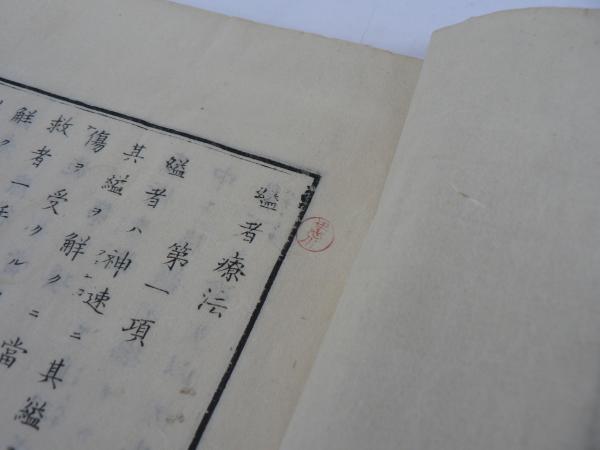 縊者療法
第一項
縊者ハ神速ニ其縊
其縊ヲ解クニ當
傷ヲ受クル
救者一手
解ク